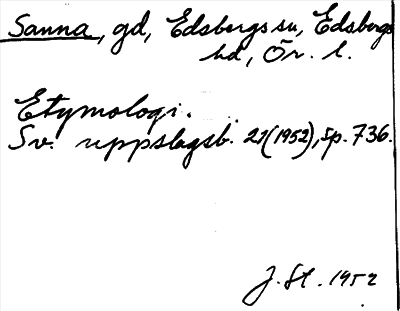 Sanna, gd, Edsbergs sn, Edsbergs
hd, Ör. l.
Etymologi.
Sv. uppslagsb. 27(1952), sp. 736.
J. St. 1952